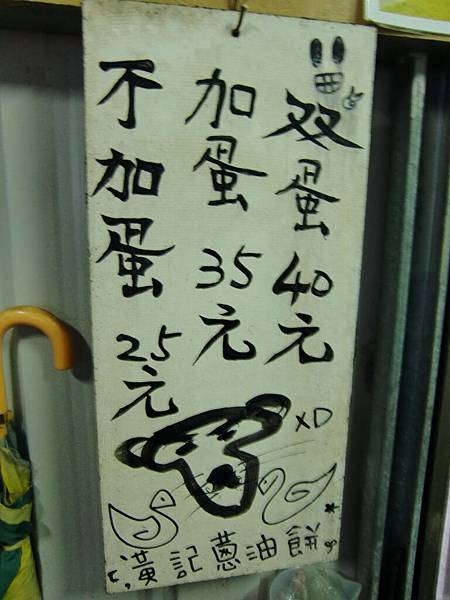 双蛋40元
加蛋35元
不加蛋25元
XD
潢記蔥油餅